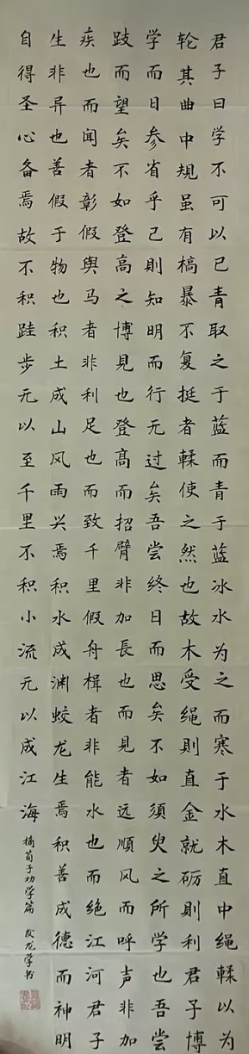 君子曰学不可以已青取之于蓝而青于蓝冰水为之而寒于水木直中绳輮以为
轮其曲中规虽有槁暴不复挺者輮使之然也故木受绳則直金就砺則利君子博
学而日参省乎己則知明而行无过矣吾尝终日而思矣不如须臾之所学也吾尝
跂而望矣不如登高之博見也登高而招臂非加長也而見者远順风而呼声非加
疾也而闻者彰假舆马者非利足也而致千里假舟楫者非能水也而绝江河君子
生非异也善假于物也积土成山风雨兴焉积水成渊蛟龙生焉积善成德而神明
自得圣心备焉故不积跬步无以至千里不积小流无以成江海
摘荀子劝学篇 龙学书